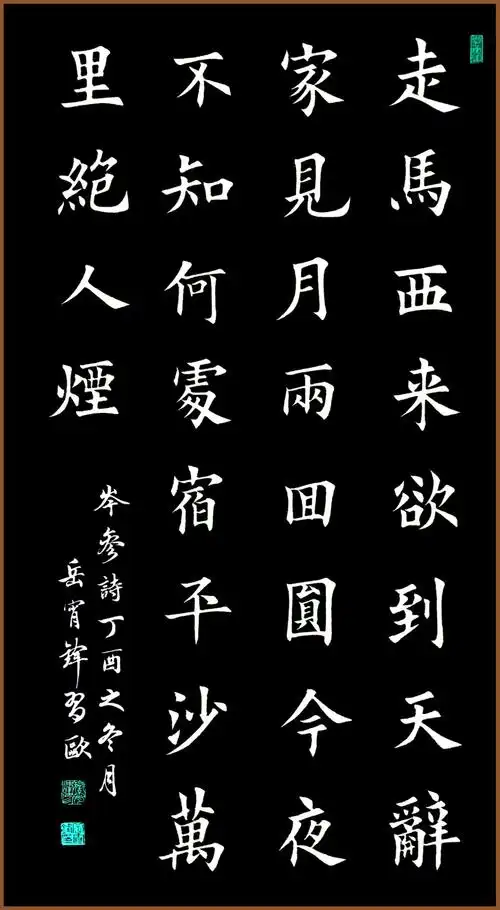 走馬西来欲到天辭
家見月兩回圓今夜
不知何處宿平沙萬
里絕人煙
岑參詩丁酉之冬月
岳宵鋒習歐